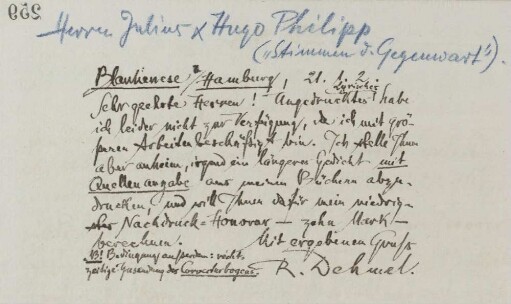 269
Herrn Julius & Hugo Philipp
("Stimmen d. Gegenwart").
Blankenese b/Hamburg, 21. 1. 2.
Sehr geehrte Herren! Ungedrucktes Lyrisches habe
ich leider nicht zur Verfügung, da ich mit grö-
ßeren Arbeiten beschäftigt bin. Ich stelle Ihnen
aber anheim, irgend ein längeres Gedicht mit
Quellenangabe aus meinen Büchern abzu-
drucken, und will Ihnen dafür mein niedrig-
stes Nachdruck-Honorar – zehn Mark –
berechnen. Mit ergebenem Gruß
NB! Bedingung außerdem: recht-
zeitige Zusendung des Correcturbogens. R. Dehmel.